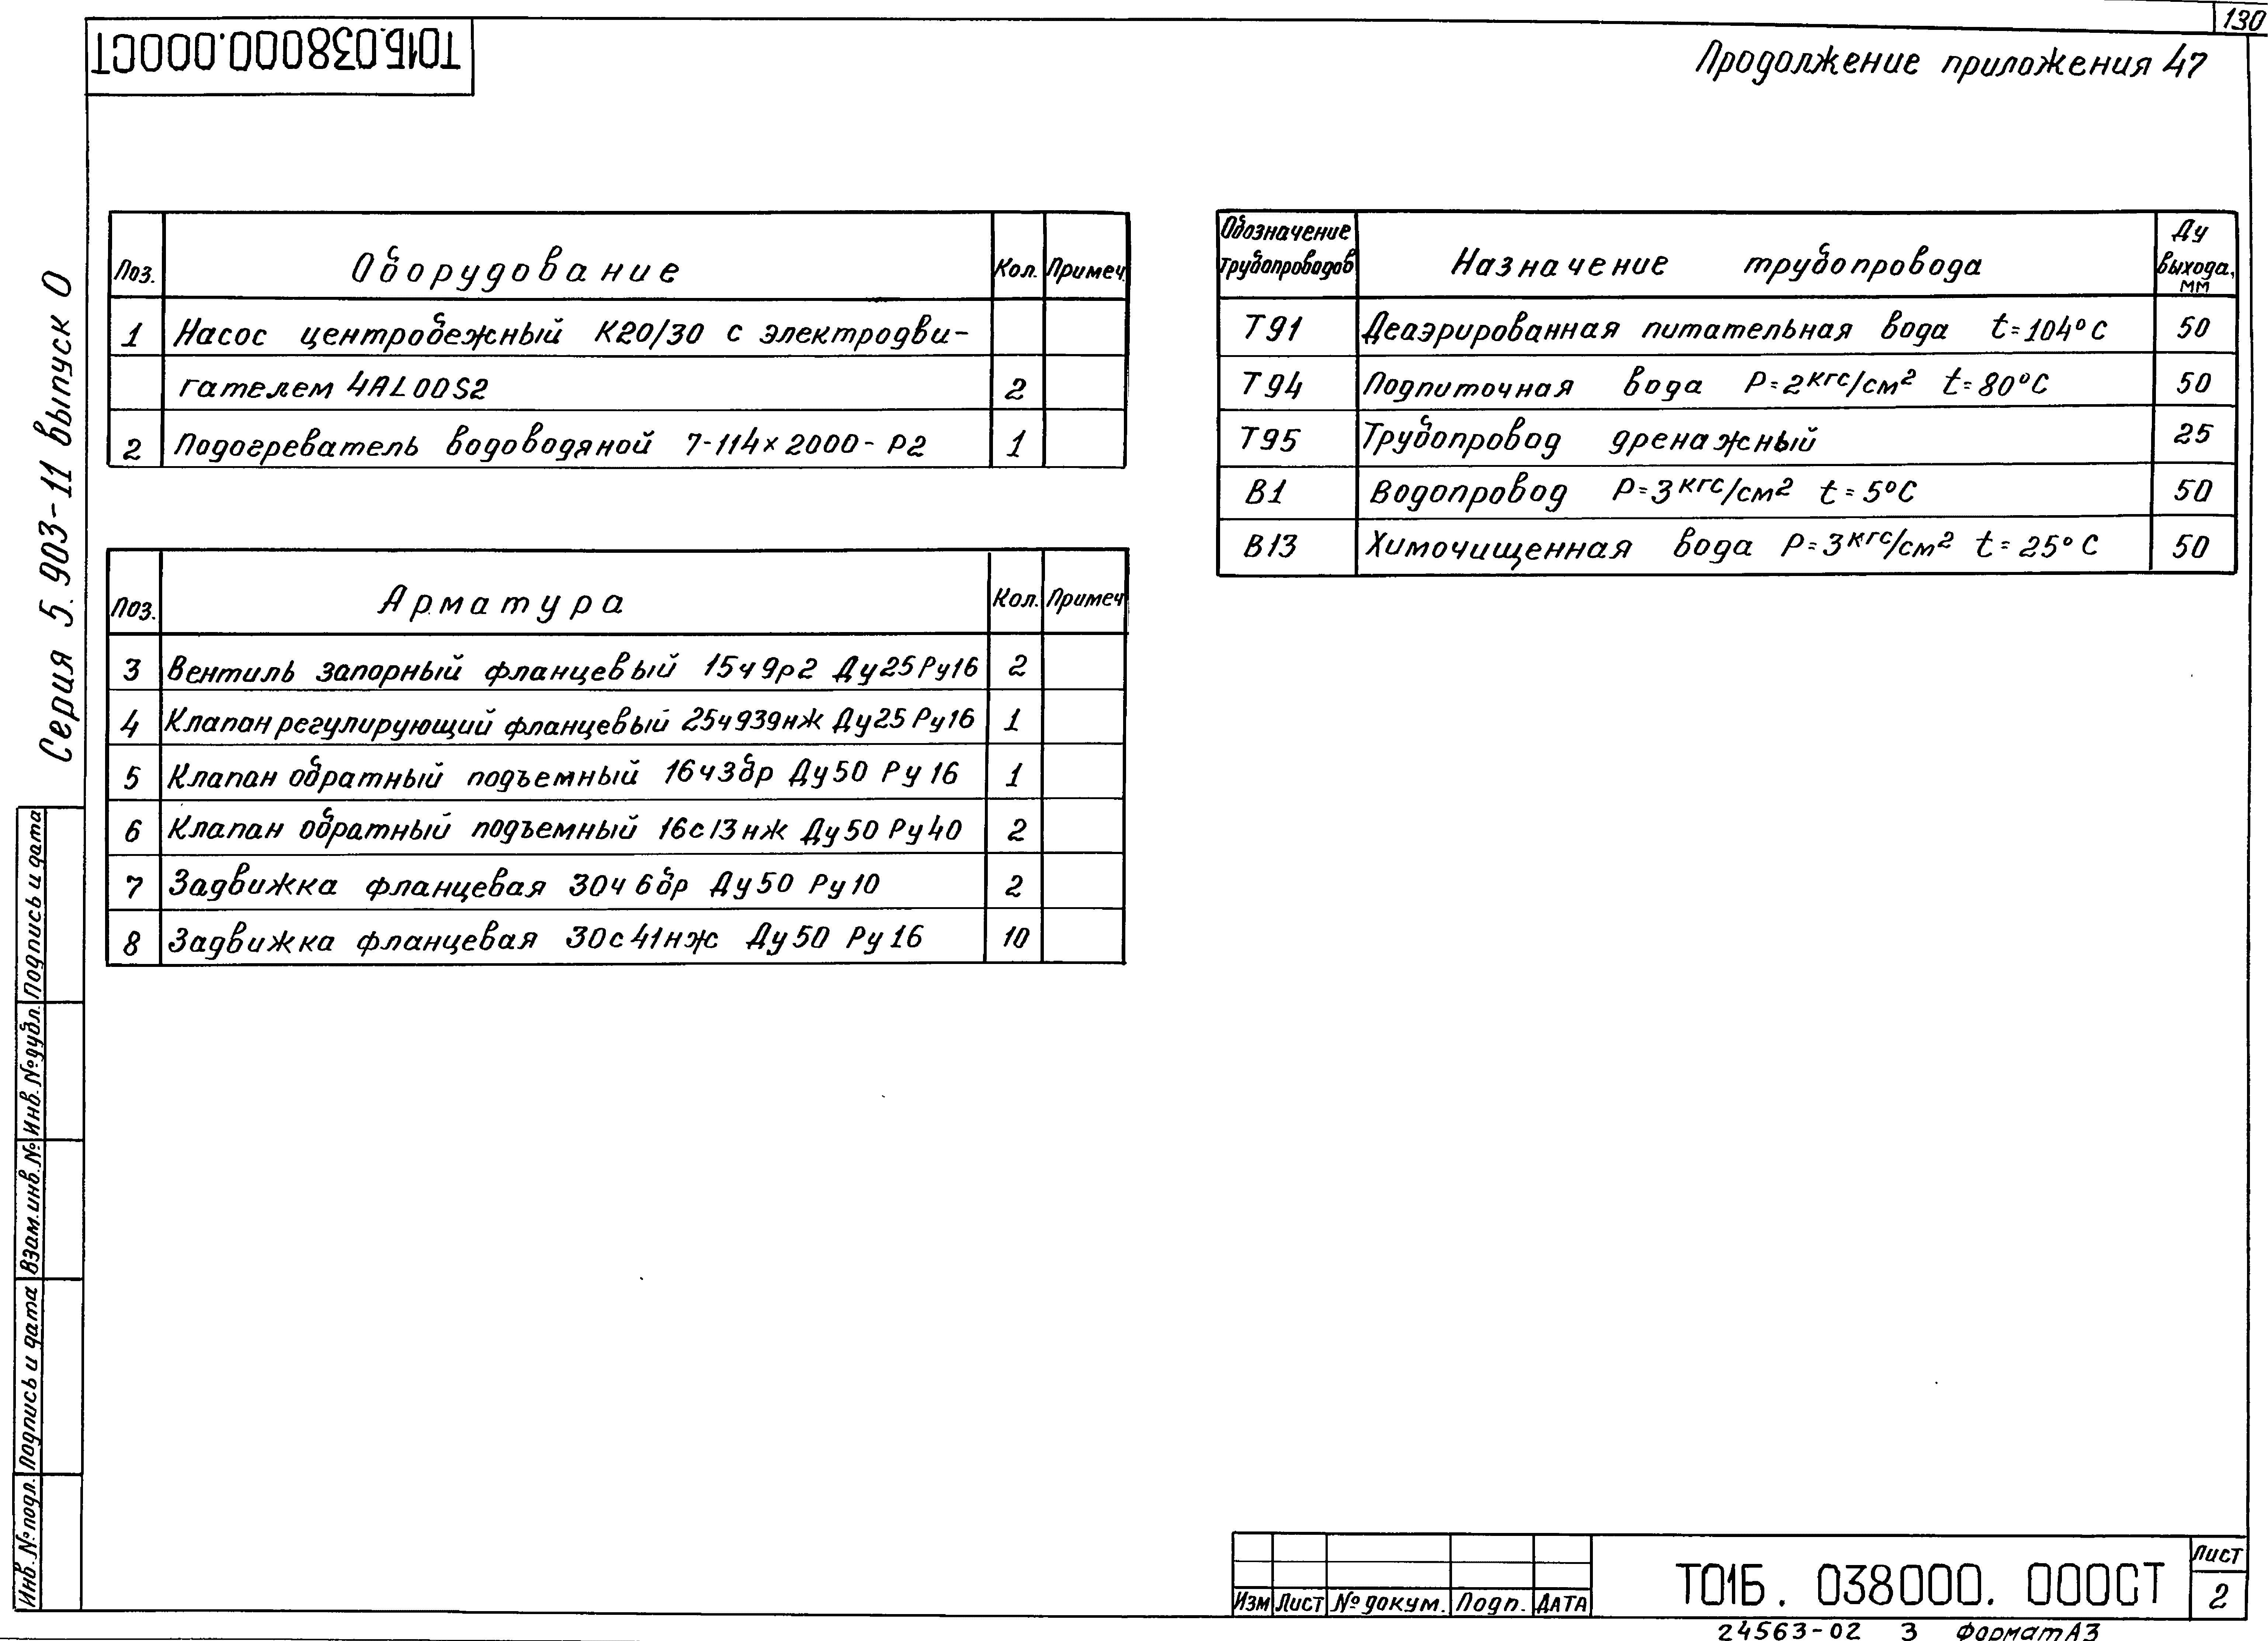 130
Т01Б.038000.000СТ
Продолжение приложения 47
Серия 5.903-11 выпуск 0
Поз. Оборудование Кол. Примеч.
1 Насос центробежный К20/30 с электродви-
гателем 4AL00S2 2
2 Подогреватель водоводяной 7-114×2000-Р2 1
Поз. Арматура Кол. Примеч
3 Вентиль запорный фланцевый 15ч9р2 Ду25 Ру16 2
4 Клапан регулирующий фланцевый 25ч939нж Ду25 Ру16 1
5 Клапан обратный подъемный 16ч3бр Ду50 Ру16 1
6 Клапан обратный подъемный 16с13нж Ду50 Ру40 2
7 Задвижка фланцевая 30ч6бр Ду50 Ру10 2
8 Задвижка фланцевая 30с41нж Ду50 Ру16 10
Обозначение трубопроводов Назначение трубопровода Ду выхода, мм
Т91 Деаэрированная питательная вода t=104°С 50
Т94 Подпиточная вода Р=2кгс/см² t=80°С 50
Т95 Трубопровод дренажный 25
В1 Водопровод Р=3кгс/см² t=5°С 50
В13 Химочищенная вода Р=3кгс/см² t=25°С 50
Инв.№подл. Подпись и дата Взам.инв.№ Инв.№дубл. Подпись и дата
Изм Лист №докум. Подп. Дата
Т01Б. 038000. 000СТ
Лист
2
24563-02 3 Формат А3